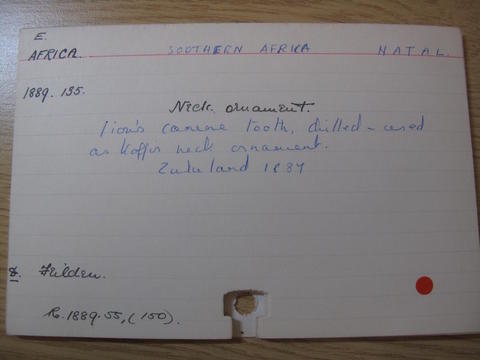 E.
AFRICA. SOUTHERN AFRICA NATAL.
1889.135.
Neck ornament.
Lion's canine tooth, drilled - used
as Kaffir neck ornament.
Zululand 1887
&. Feilden.
R.1889.55,(150).